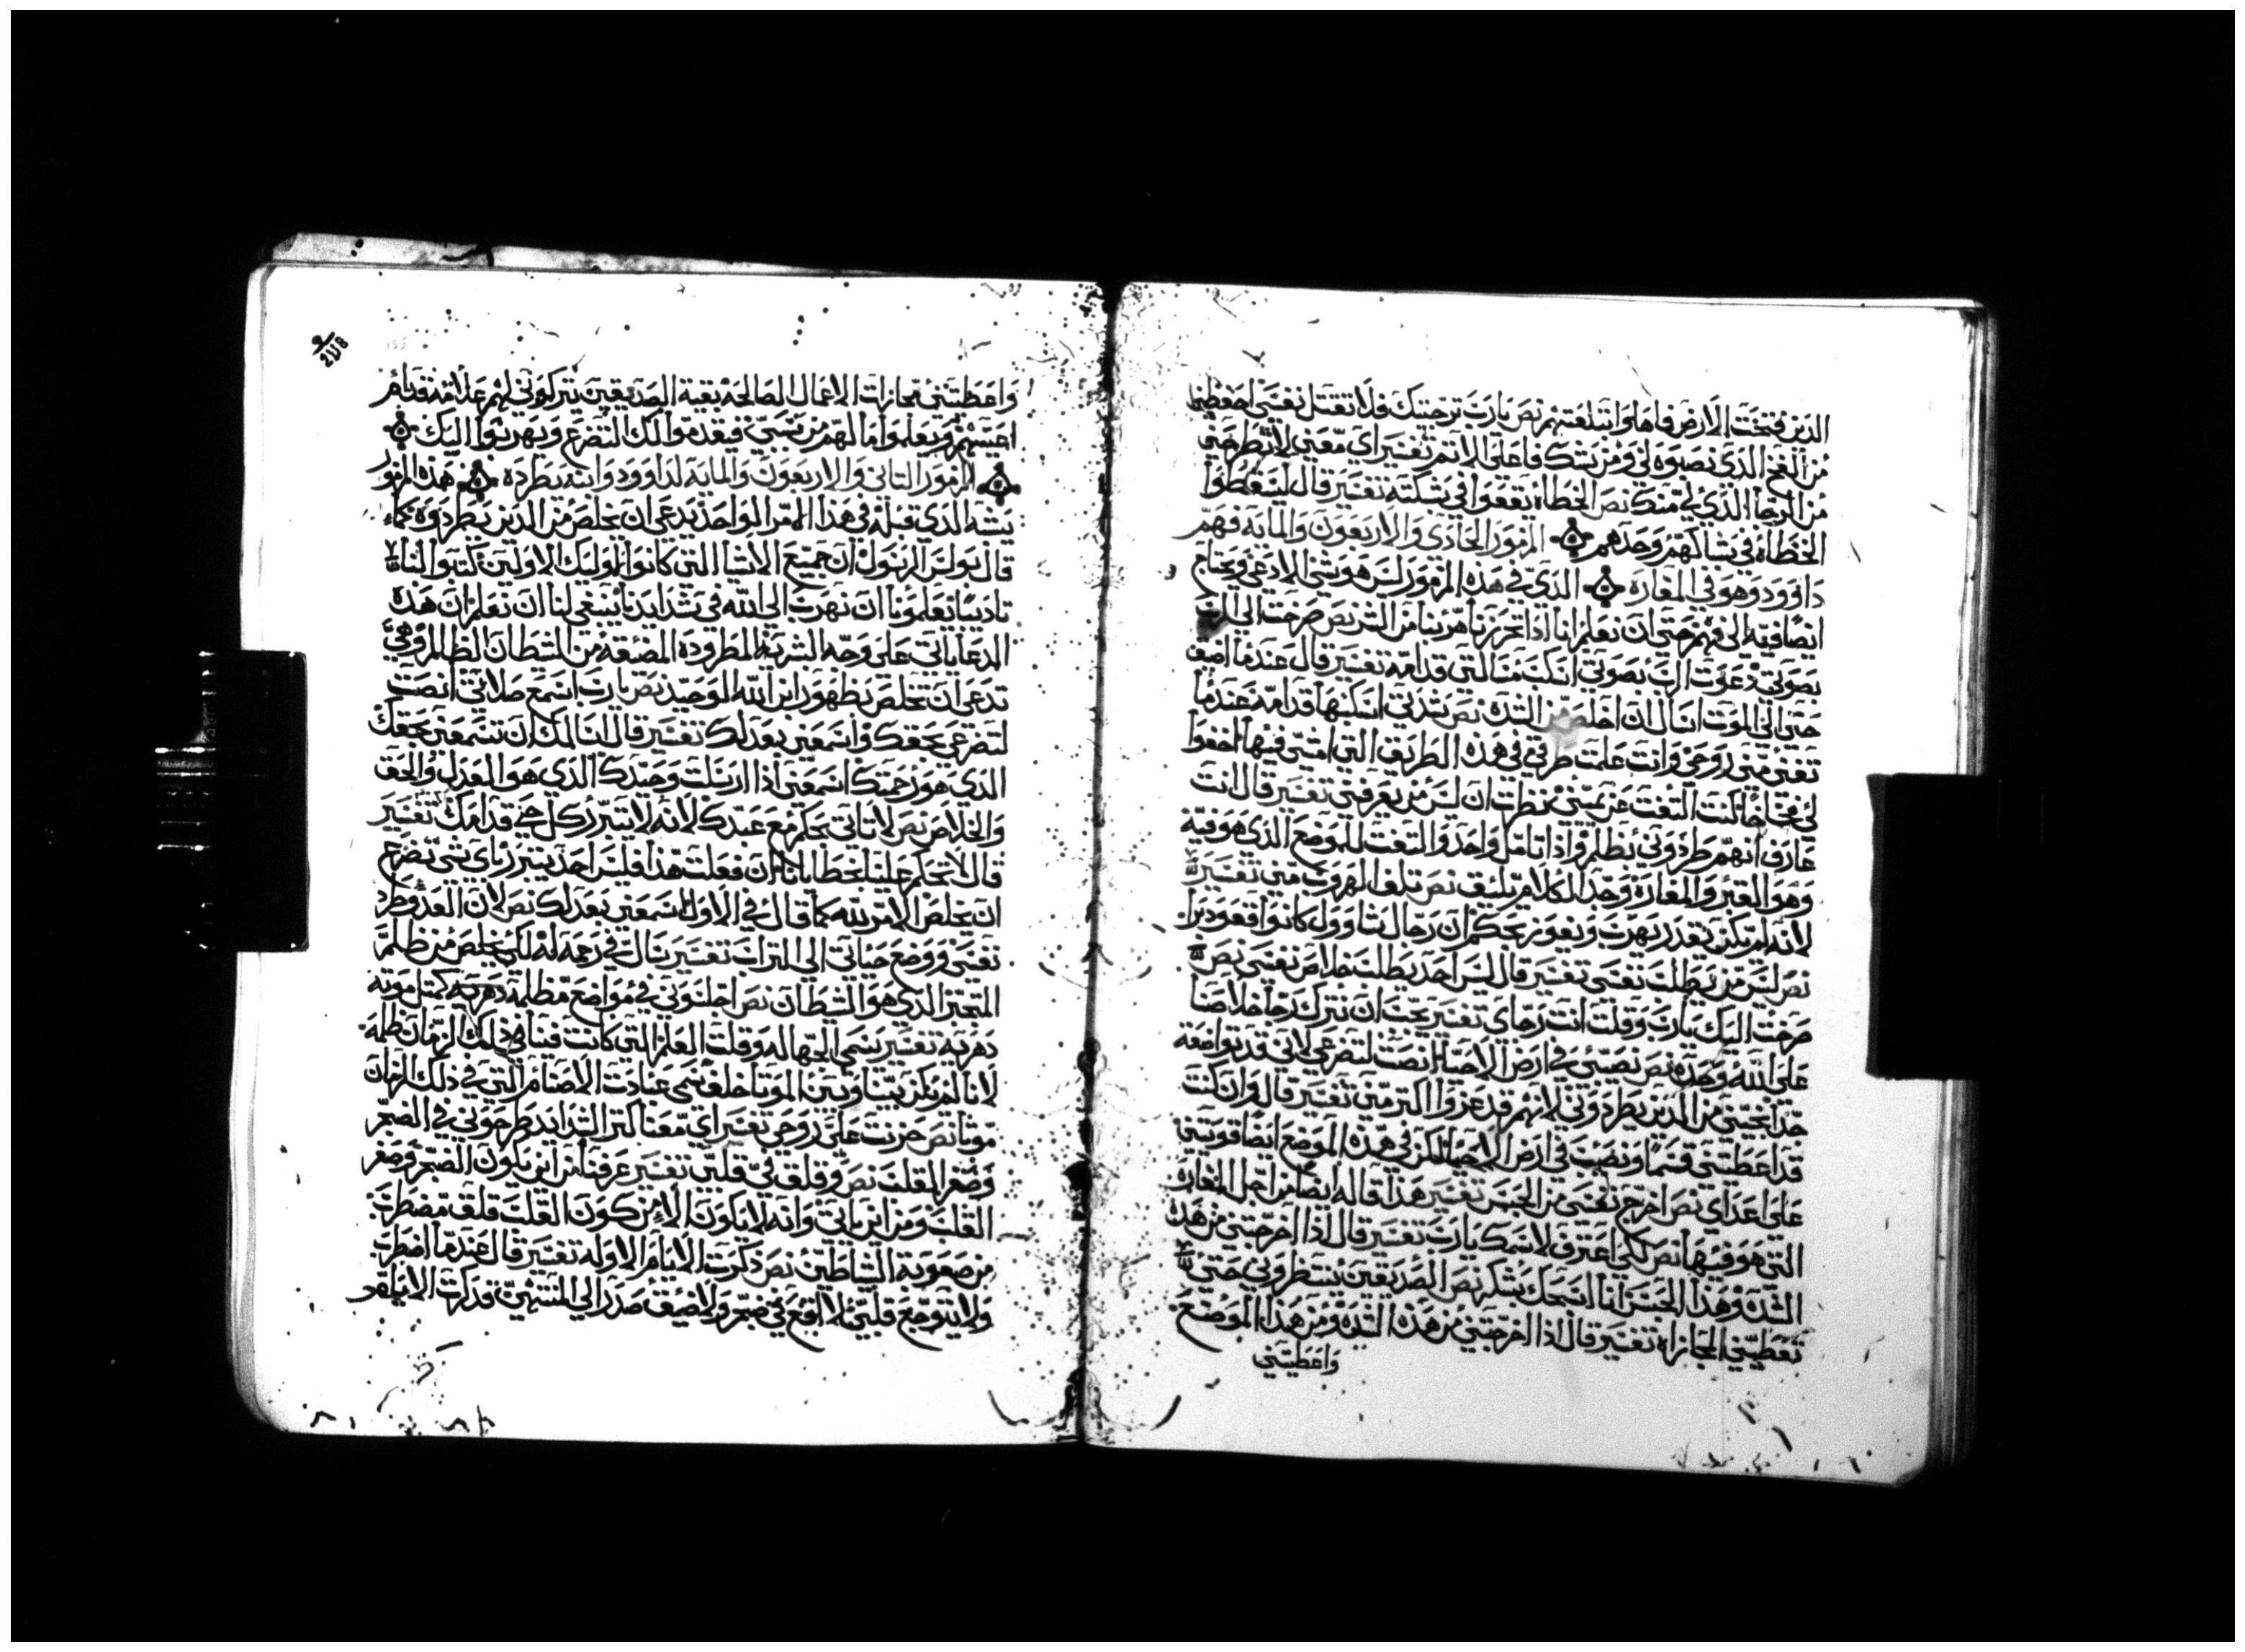 الذين فتحت الارض فاها وابتلعتهم نص يارب ترجيتك فلا تقتل نفسي احفظني
من الفخ الذي نصبوه لي ومن شك فاعلي الاتم تفسير اي معني لا تطرحني
من الرجا الذي لي منك نص الخطاه يقعوا في شبكته تفسير قال ليسقطوا
الخطاه في شباكهم وحدهم المزمور الحادي والاربعون والمايه فهم
داوود وهو في المغاره الذي في هذه المزمور ليس هو شي الا دعي ويحتاج
ايضا فيه الي فهم حتي ان نعلم اننا اذا تحرزنا هربنا من الشر نص صرخت الي الرب
بصوتي دعوت الرب بصوتي انسكب مسالتي قدامه تفسير قال عندما اضيق
حتي الي الموت اسال ان اخلص من الشده نص شدتي اسكبها قدامه عندما
تفني مني روحي وانت علمت طرقي في هذه الطريق التي امشي فيها اخفوا
لي فخا لما كنت التفت عن يميني نظرت ان ليس من يعرفني تفسير قال انت
عارف انهم طردوني بظلم واذا تامل واحد والتفت للموضع الذي هو فيه
وهو القبر والمغاره وجد الكلام يليق نص تلف الهروب مني تفسير
لانه لم يكن يقدر يهرب ويفوز بحكم ان رجال شاوول كانوا قعود برا
نص ليس من يطلب نفسي تفسير قال ليس احد يطلب خلاص نفسي نص
صرخت اليك يارب وقلت انت رجاي تفسير يجب ان نترك رجا خلاصنا
علي الله وحده نص نصيبي في ارض الاحيا انصت لتضرعي لاني قد تواضعت
جدا نجيني من الذين يطردوني لانهم قد عزوا اكتر مني تفسير قال وان كنت
قد اعطيتني قسما ونصيب في ارض الاحيا لكن في هذه الموضع ايضا قويتني
علي اعداي نص اخرج نفسي من الحبس تفسير هذا قاله ايضا من اجل المغاره
التي هو فيها نص لكي اعترف لاسمك يارب تفسير قال اذا اخرجتني من هذه
الشده وهذا الحبس انا اسبحك بشكر نص الصديقين ينتظروني حتي
تعطيني المجازاه تفسير قال اذا اخرجتني من هذه الشده ومن هذا الموضع
واعطيتني
واعطيتني مجازات الاعمال الصالحه بقية الصديقين يتركوني لهم علامه قدام
اعينهم ويعلموا ما لهم من يسي فيقدموا لك التضرع ويهربوا اليك
المزمور التاني والاربعون والمايه لداوود وابنه يطرده هذه المزمور
يشبه الذي قبله في هذا الامر الواحد يدعي ان يخلص من الذين يطردوه كما
قال بولس الرسول ان جميع الاشيا التي كانوا لاوليك الاولين كتبوا لنا
تاديبا يعلمونا ان نهرب الي الله في شدايدنا ينبغي لنا ان نعلم ان هذه
الدعا ياتي علي وجه البشرية المطروده المضنعفه من الشيطان الظالم وهي
تدعي ان تخلص بظهور ابن الله الوحيد نص يارب اسمع صلاتي انصت
لتضرعي بحقك واسمعني بعدلك تفسير قال لنا لك ان تسمعني بحقك
الذي هو رحمتك اسمعني اذا ارسلت وحيدك الذي هو العدل والحق
والخلاص نص لا تاتي بحكم مع عبدك لانه لا يتبرر كل حي قدامك تفسير
قال لا تحكم علينا بخطايانا ان فعلت هذا فليس احد يتبرر باي شي تضرع
ان يخلص الا مريته كما قال في الاول اسمعني بعدلك نص لان العدو طرد
نفسي ووضع حياتي الي التراب تفسير يسال في رحمه له لكي يخلص من ظلم
المتجبر الذي هو الشيطان نص اجلسوني في مواضع مظلمة دهريه كمتل موته
دهريه تفسير يسمي الجهاله وقلت العلم التي كانت فينا في ذلك الزمان ظلمه
لانا لم يكن بيننا وبين الموتا خلف يسمي عبادت الاصنام التي في ذلك الزمان
موتا نص حزنت علي روحي تفسير اي معنا كتر الشدايد طرحوني في الضجر
وصغر القلب نص وقلق في قلبي تفسير عرفنا من اين يكون الضجر وصغر
القلب ومن اين ياتي وانه لا يكون الا من كون القلب قلق مضطرب
من صعوبة الشياطين نص ذكرت الايام الاوله تفسير قال عندما اضطرب
ولا يتوجع قلبي لا اقع في ضجر ولا ضيق صدر الي المنتهي قد ذكرت الايام